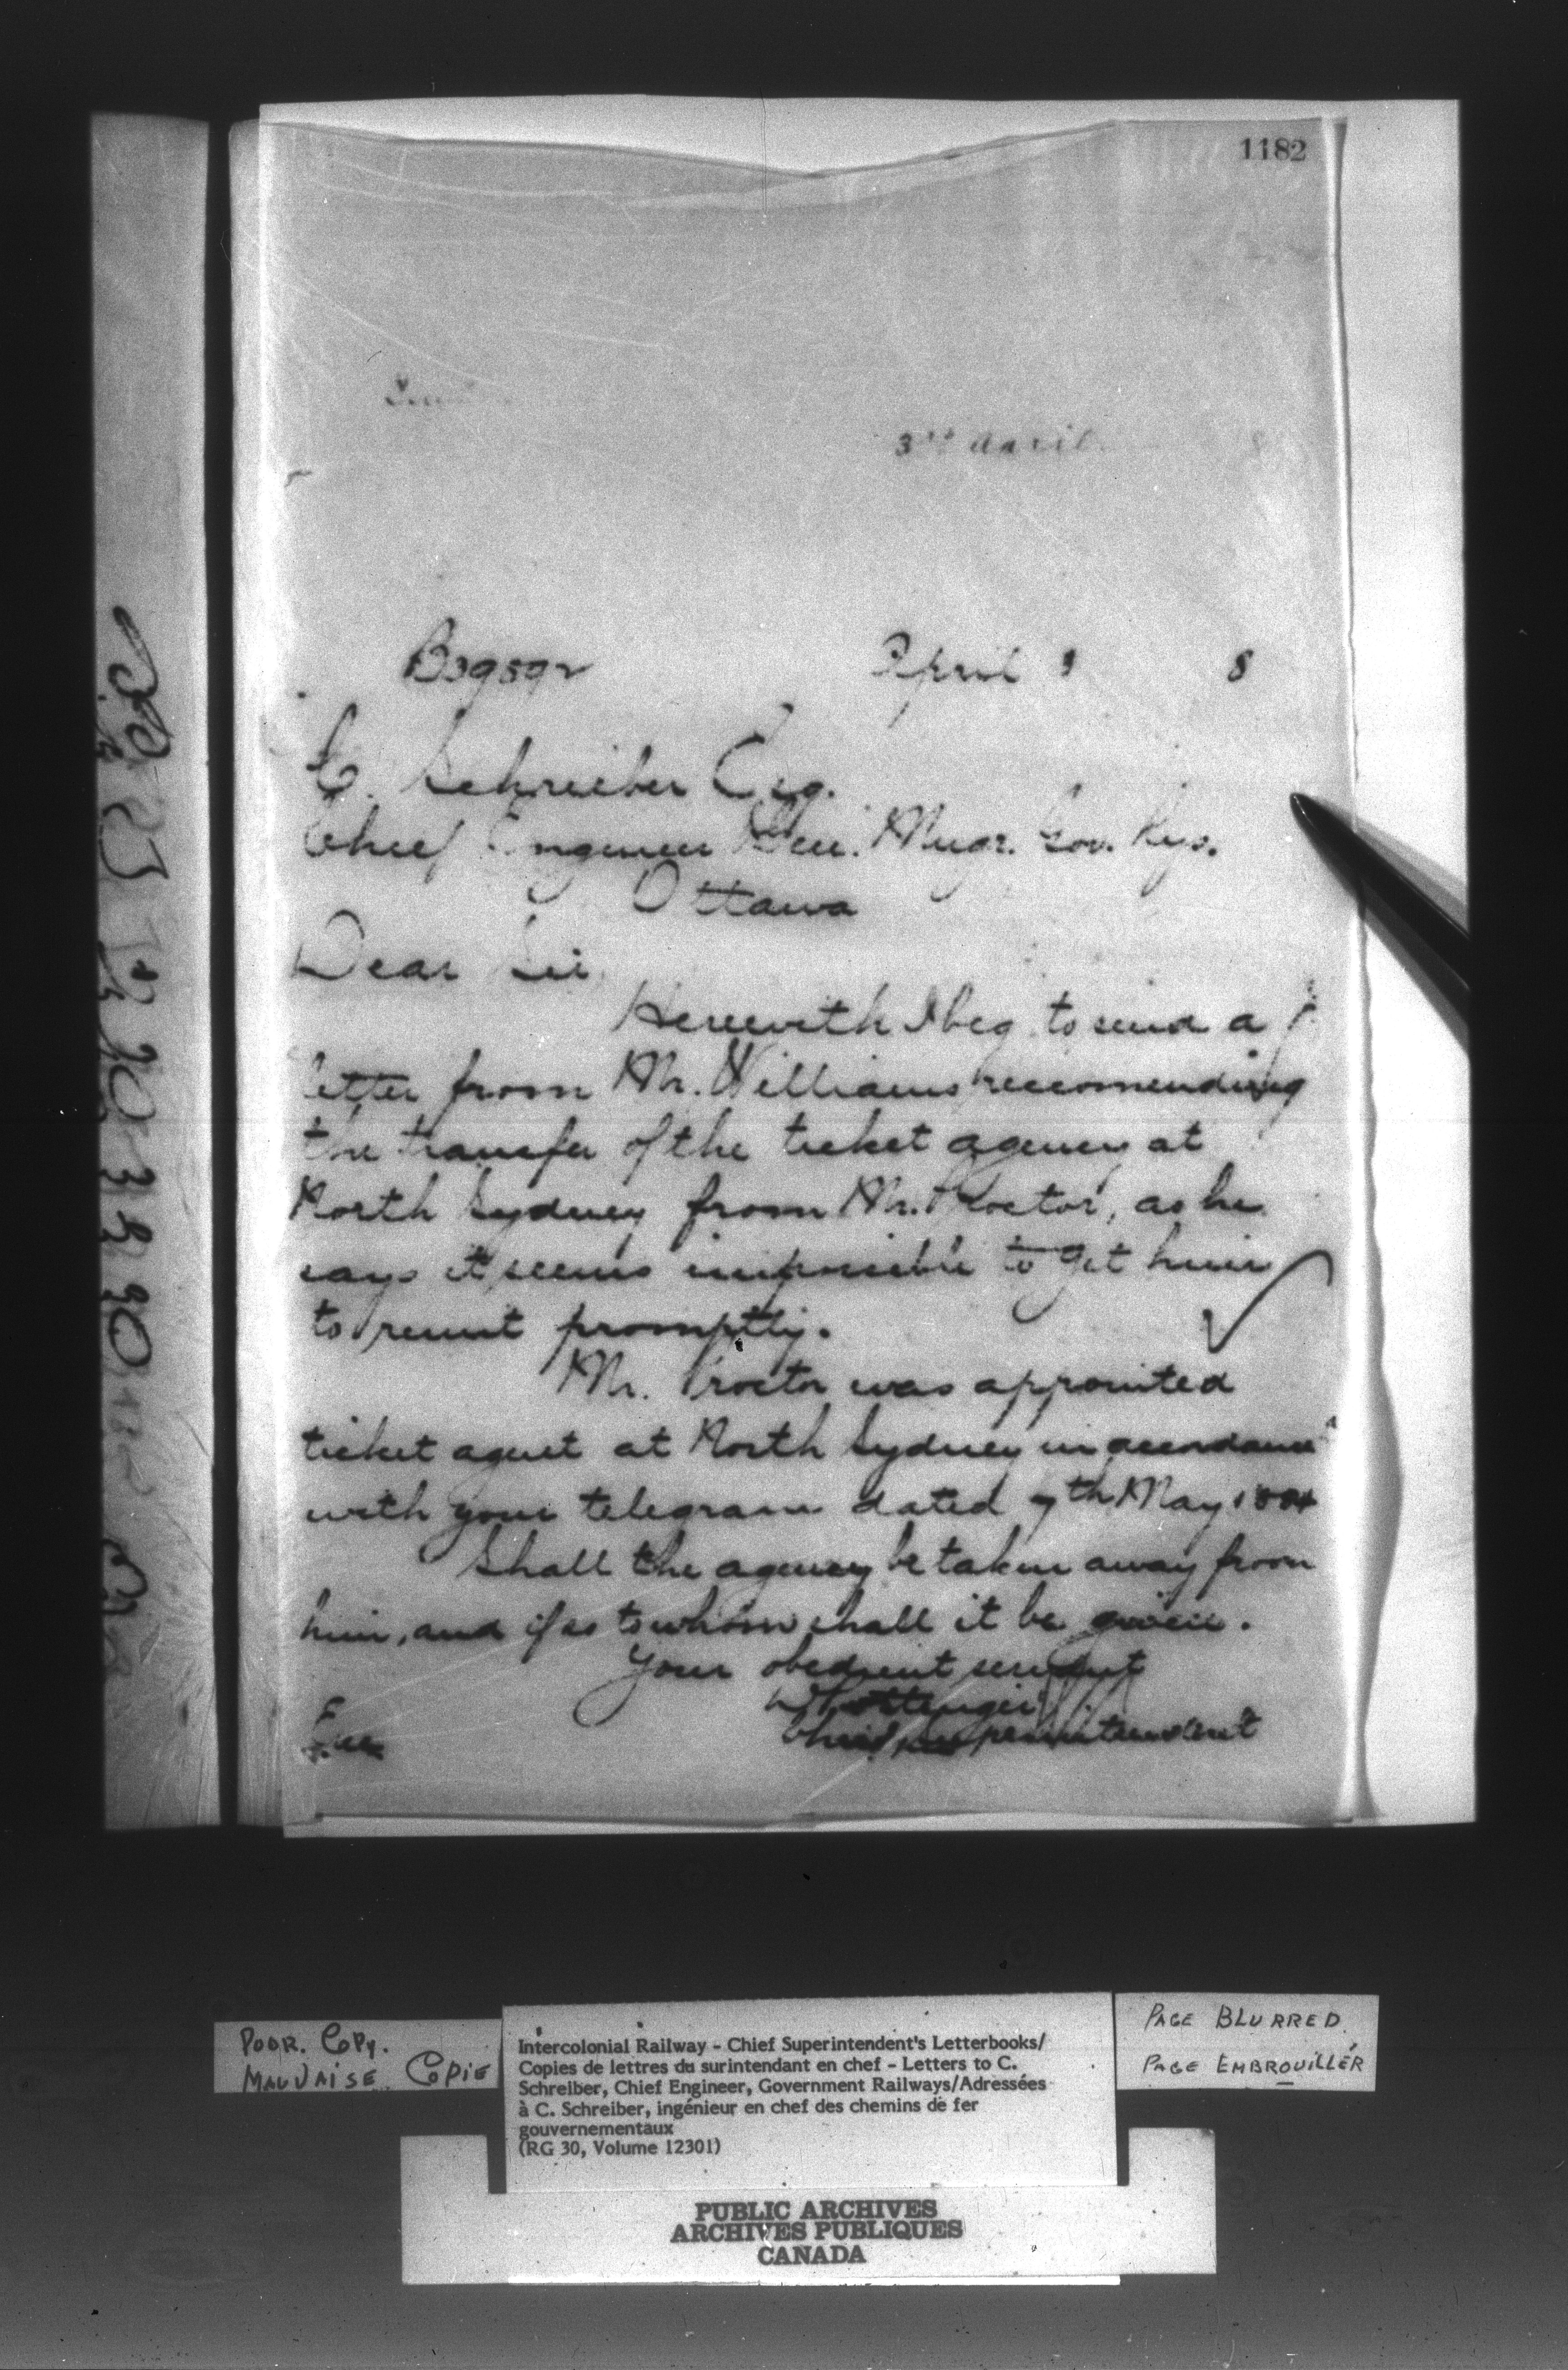 1182
3rd April
B39592
April 3 8
C. Schreiber Esq.
Chief Engineer Genl. Mngr. Gov. Rys.
Ottawa
Dear Sir
Herewith I beg to send a
letter from Mr. Williams recomending
the transfer of the ticket agency at
North Sydney from Mr. Proctor, as he
says it seems impossible to get him
to remit promptly.
Mr. Proctor was appointed
ticket agent at North Sydney in accordance
with your telegram dated 7th May 1884
Shall the agency be taken away from
him, and if so to whom shall it be given.
Your obedient servant
D Pottinger
Chief Superintendent
Enc
POOR. COPY.
MAUVAISE COPIE
Intercolonial Railway - Chief Superintendent's Letterbooks/
Copies de lettres du surintendant en chef - Letters to C.
Schreiber, Chief Engineer, Government Railways/Adressées
à C. Schreiber, ingénieur en chef des chemins de fer
gouvernementaux
(RG 30, Volume 12301)
PAGE BLURRED
PAGE EMBROUILLÉR
PUBLIC ARCHIVES
ARCHIVES PUBLIQUES
CANADA